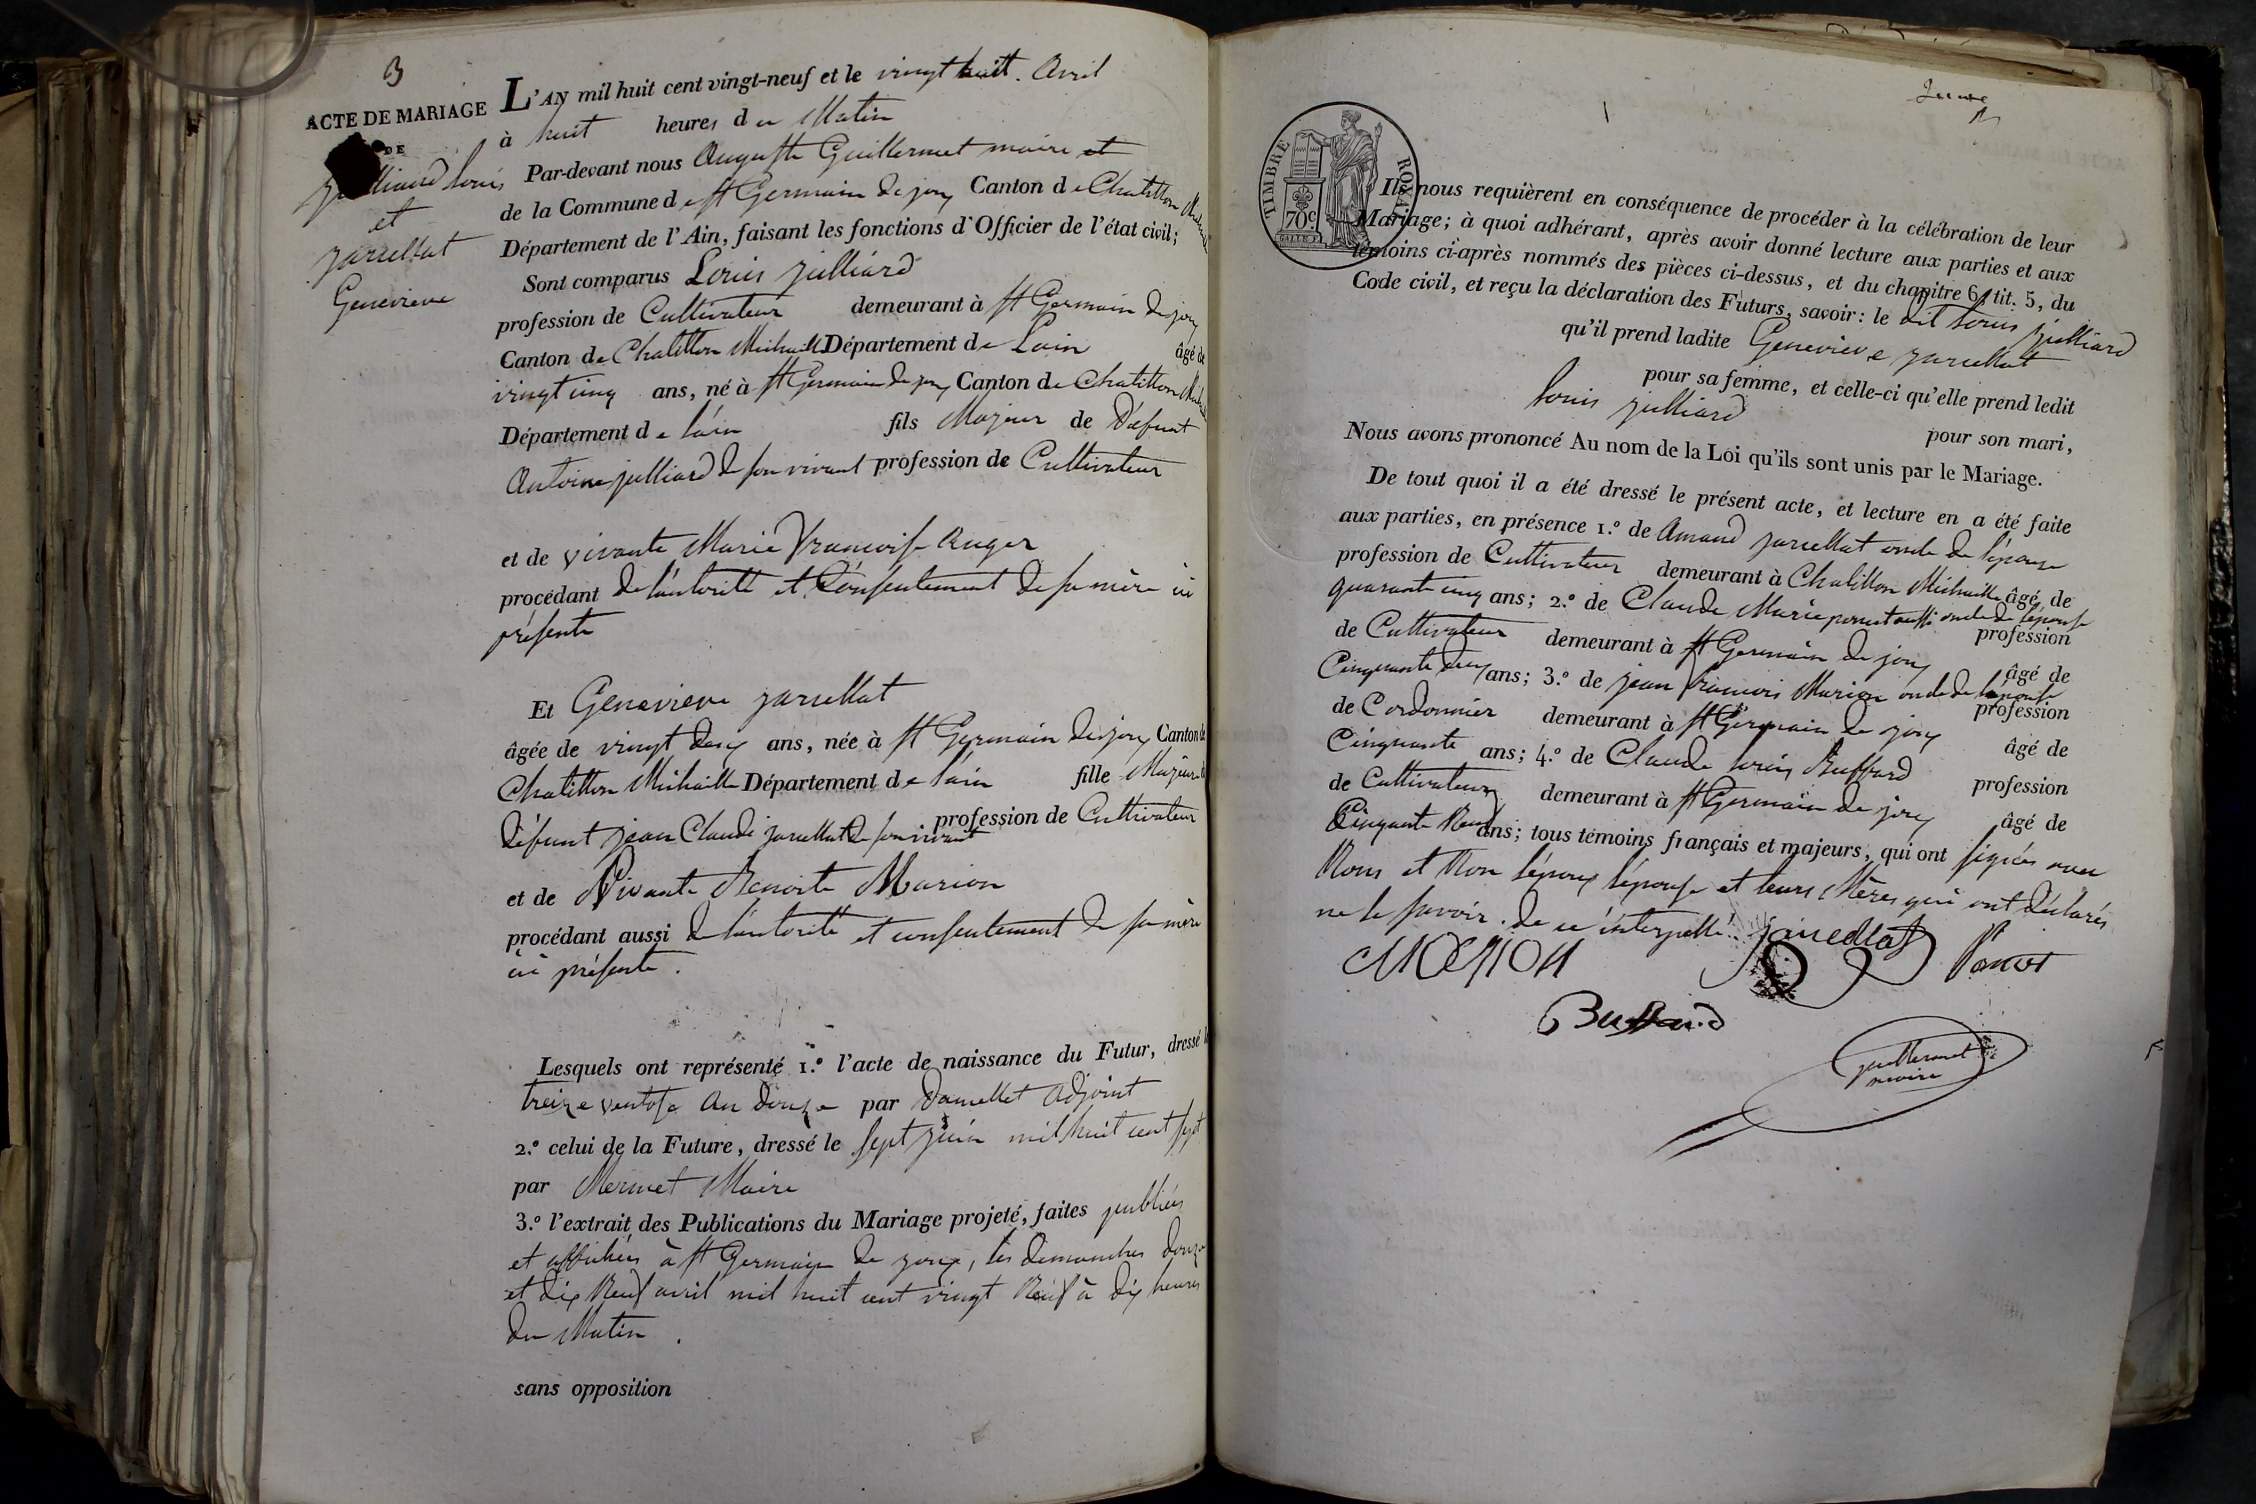 3
ACTE DE MARIAGE
DE
julliard Louis
et
jarcellat
Genevieve
L'AN mil huit cent vingt-neuf et le vingt huit. Avril
à huit heures du Matin
Par-devant nous Auguste Guillermet maire et
de la Commune de st Germain de joux Canton de Chatillon Michaille
Département de l'Ain, faisant les fonctions d'Officier de l'état civil;
Sont comparus Louis julliard
profession de Cultivateur demeurant à st Germain de joux
Canton de Chatillon Michaille Département de Lain âgé de
vingt cinq ans, né à st Germain de joux Canton de Chatillon Michaille
Département de l'ain fils Majeur de Défunt
Antoine julliard de son vivant profession de Cultivateur
et de vivante Marie françoise Auger
procédant de l'autorité et Consentement de sa mère ici
présente
Et Genevieve jarcellat
âgée de vingt deux ans, née à st Germain de joux Canton de
Chatillon Michaille Département de l'ain fille Majeure de
défunt jean Claude jarcellat de son vivant profession de Cultivateur
et de Vivante Benoite Marion
procédant aussi de l'autorité et consentement de sa mère
ici présente.
Lesquels ont représenté 1.º l'acte de naissance du Futur, dressé le
treize ventose An douze par Ducellet Adjoint
2.º celui de la Future, dressé le sept juin mil huit cent sept
par Mermet Maire
3.º l'extrait des Publications du Mariage projeté, faites publiées
et affichées à st Germain de joux, les dimanches douze
et dix Neuf avril mil huit cent vingt Neuf à dix heures
du Matin.
sans opposition
TIMBRE ROYAL
70 c
Ils nous requièrent en conséquence de procéder à la célébration de leur
Mariage; à quoi adhérant, après avoir donné lecture aux parties et aux
témoins ci-après nommés des pièces ci-dessus, et du chapitre 6, tit. 5, du
Code civil, et reçu la déclaration des Futurs, savoir: le dit Louis julliard
qu'il prend ladite Genevieve jarcellat
pour sa femme, et celle-ci qu'elle prend ledit
Louis julliard pour son mari,
Nous avons prononcé Au nom de la Loi qu'ils sont unis par le Mariage.
De tout quoi il a été dressé le présent acte, et lecture en a été faite
aux parties, en présence 1.º de Amand jarcellat oncle de l'épouse
profession de Cultivateur demeurant à Chatillon Michaille âgé de
quarante cinq ans; 2.º de Claude Marie poncet aussi oncle de l'épouse profession
de Cultivateur demeurant à st Germain de joux âgé de
Cinquante deux ans; 3.º de jean françois Marion oncle de l'épouse profession
de Cordonnier demeurant à st Germain de joux âgé de
Cinquante ans; 4.º de Claude Louis Buffard profession
de Cultivateur demeurant à st Germain de joux âgé de
Cinquante Neuf ans; tous témoins français et majeurs, qui ont signés avec
Nous et Non l'époux l'épouse et leurs Mères qui ont déclarés
ne le savoir. de ce interpellé. jarcellat
MARION Poncet
Buffard
guillermet
maire